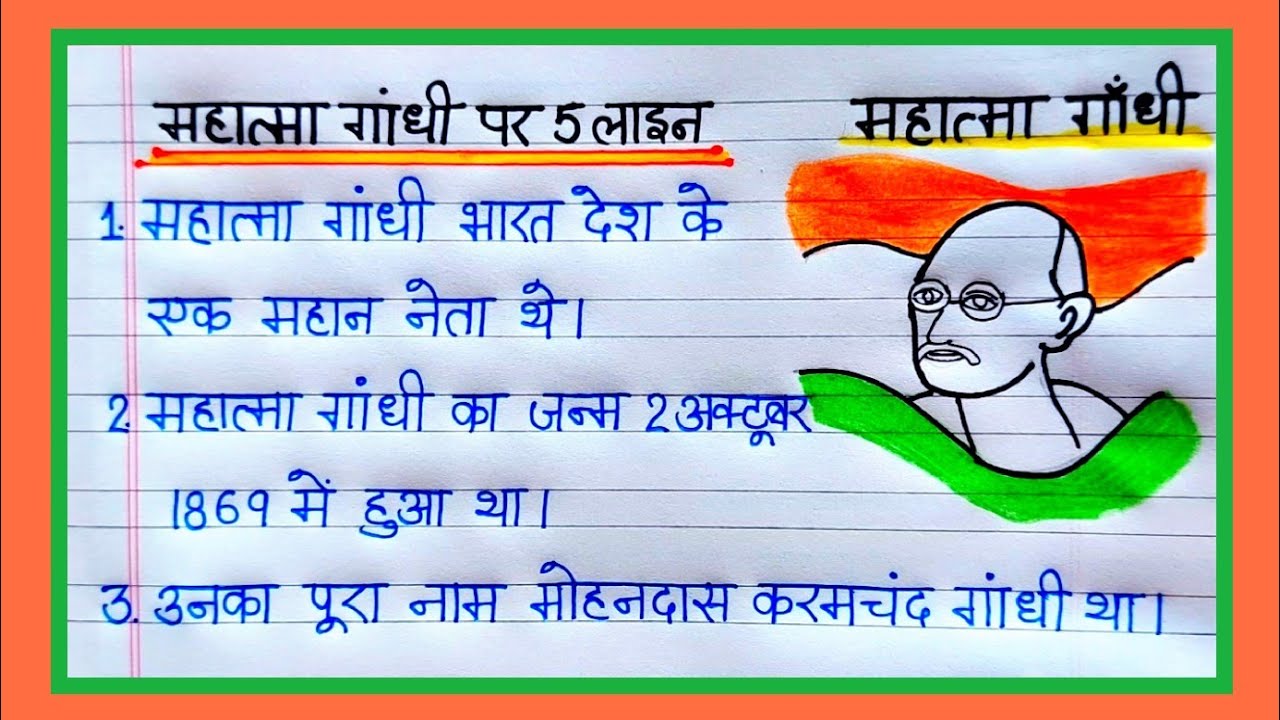 महात्मा गांधी पर 5 लाइन
महात्मा गाँधी
1. महात्मा गांधी भारत देश के
एक महान नेता थे।
2. महात्मा गांधी का जन्म 2 अक्टूबर
1869 में हुआ था।
3. उनका पूरा नाम मोहनदास करमचंद गांधी था।